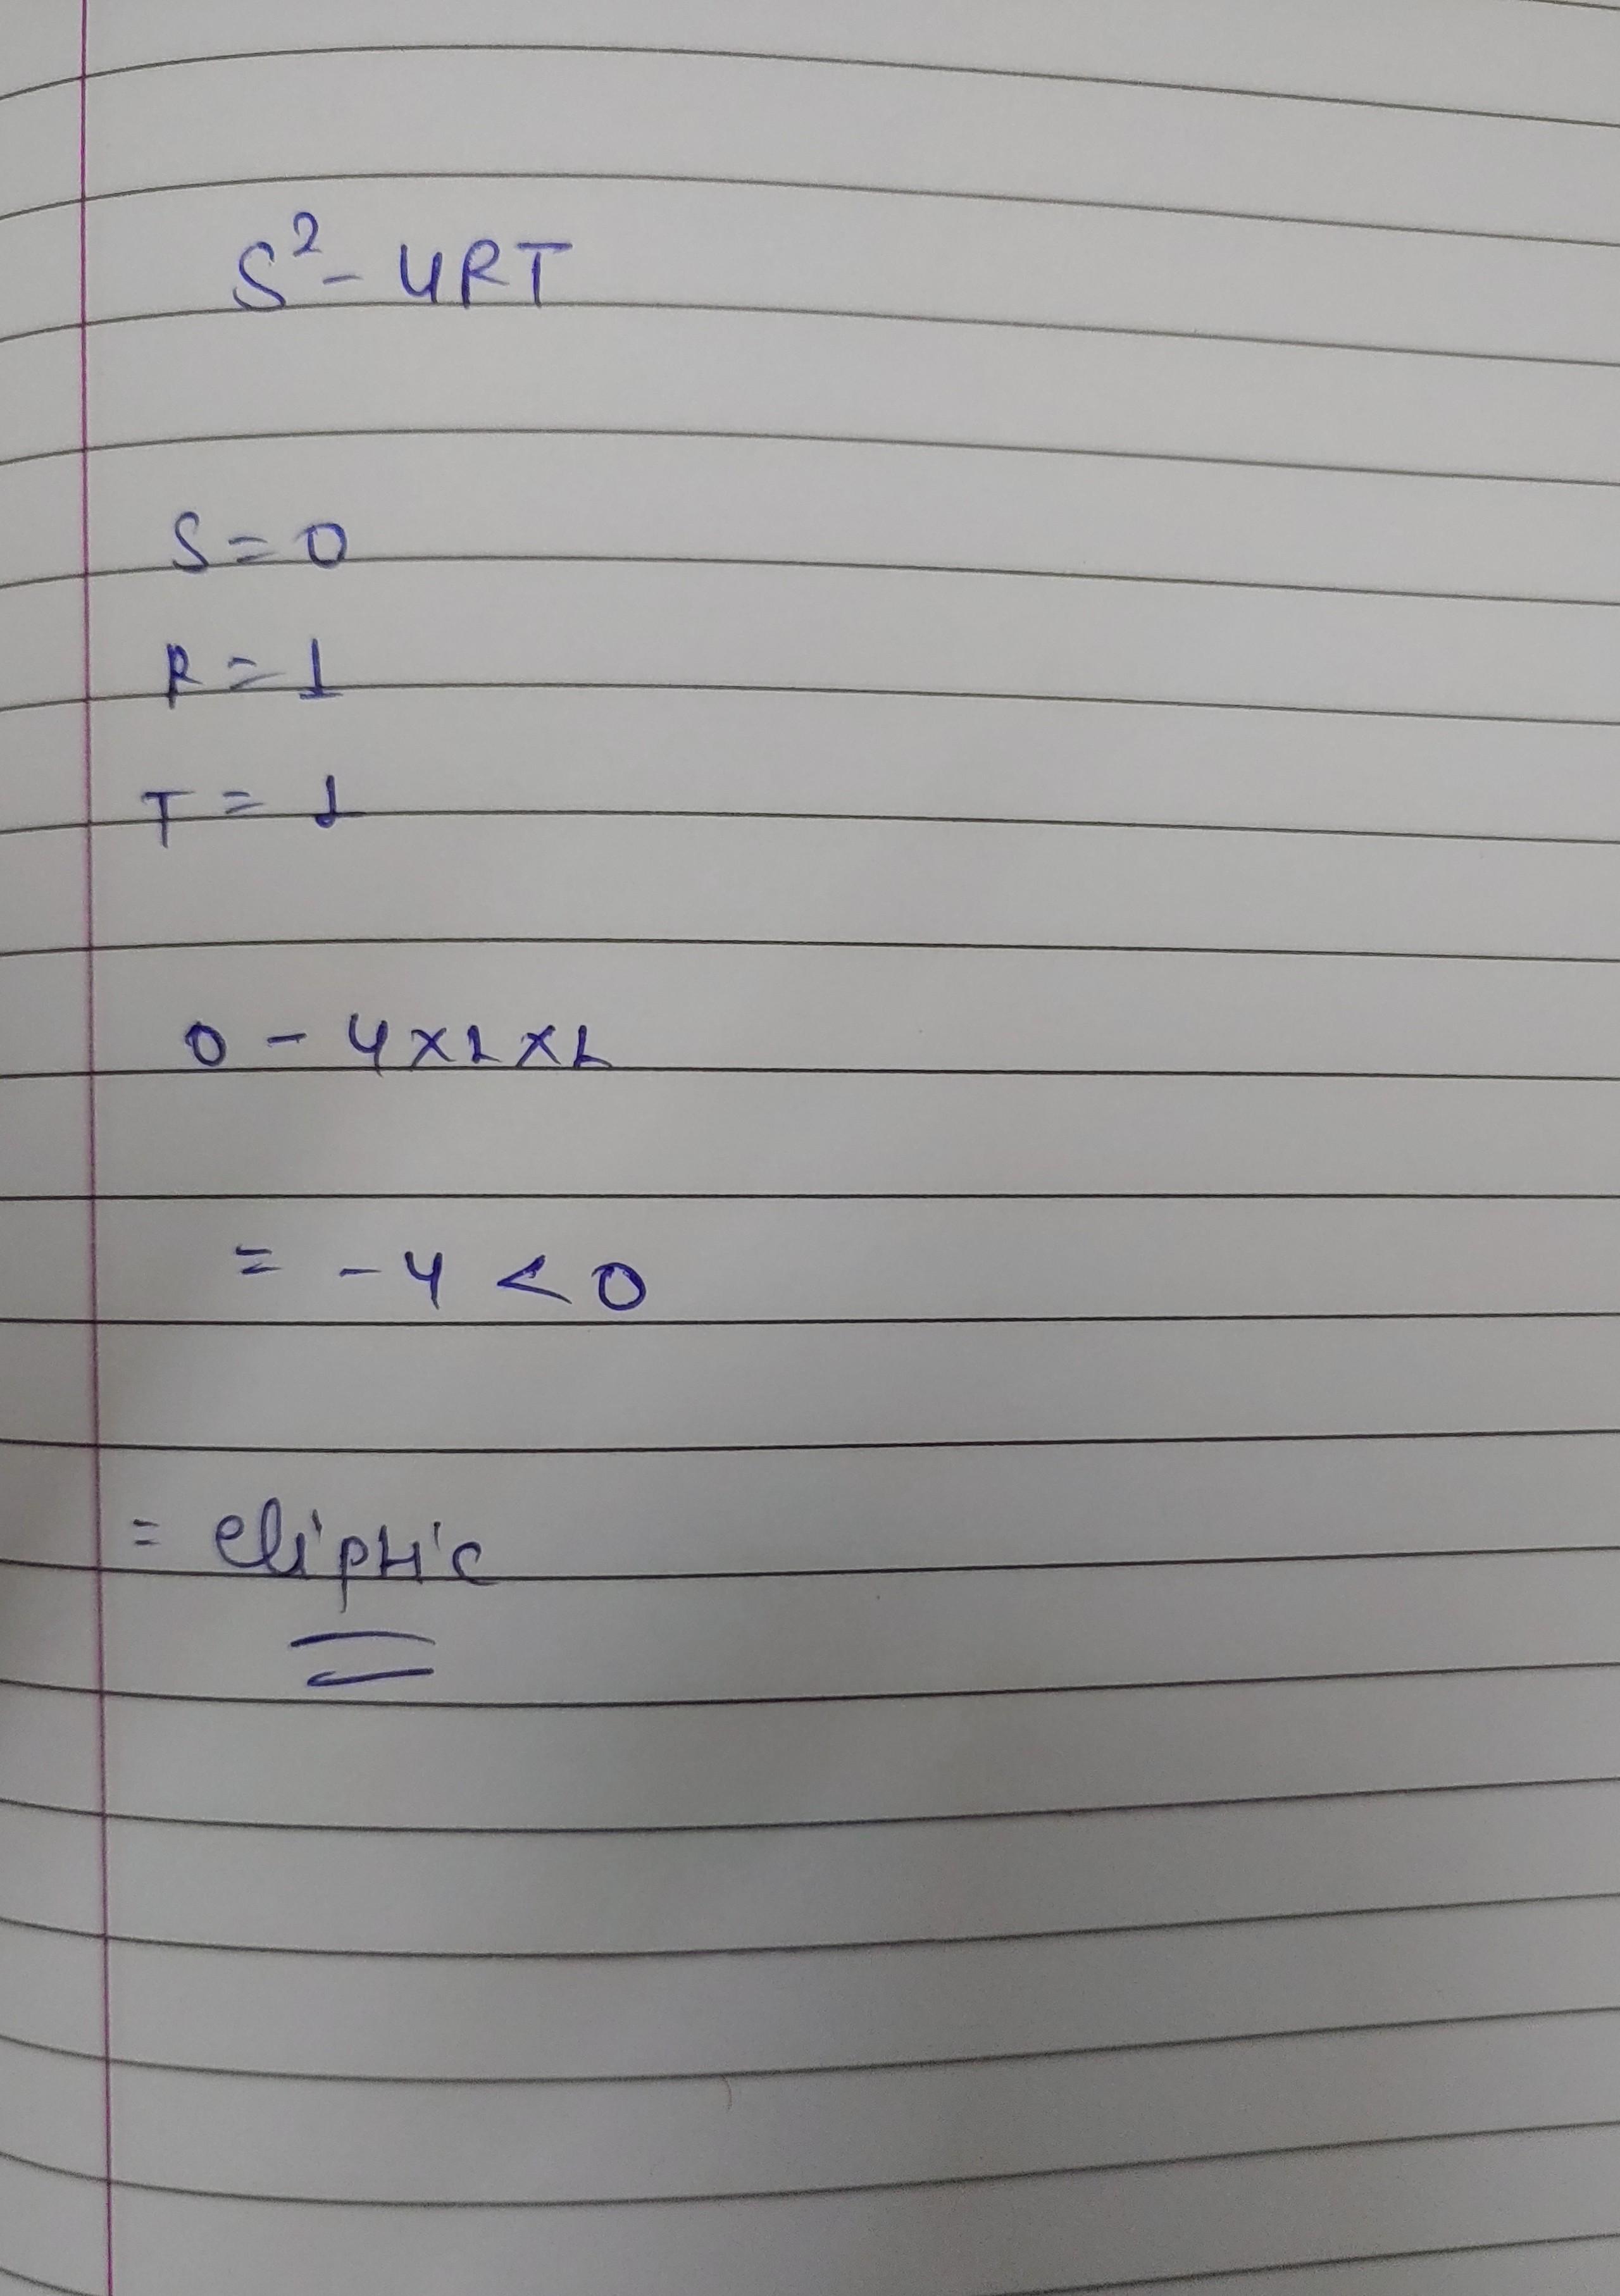 S² - 4RT
S = 0
R = 1
T = 1
0 - 4 × 1 × 1
= -4 < 0
= eliptic